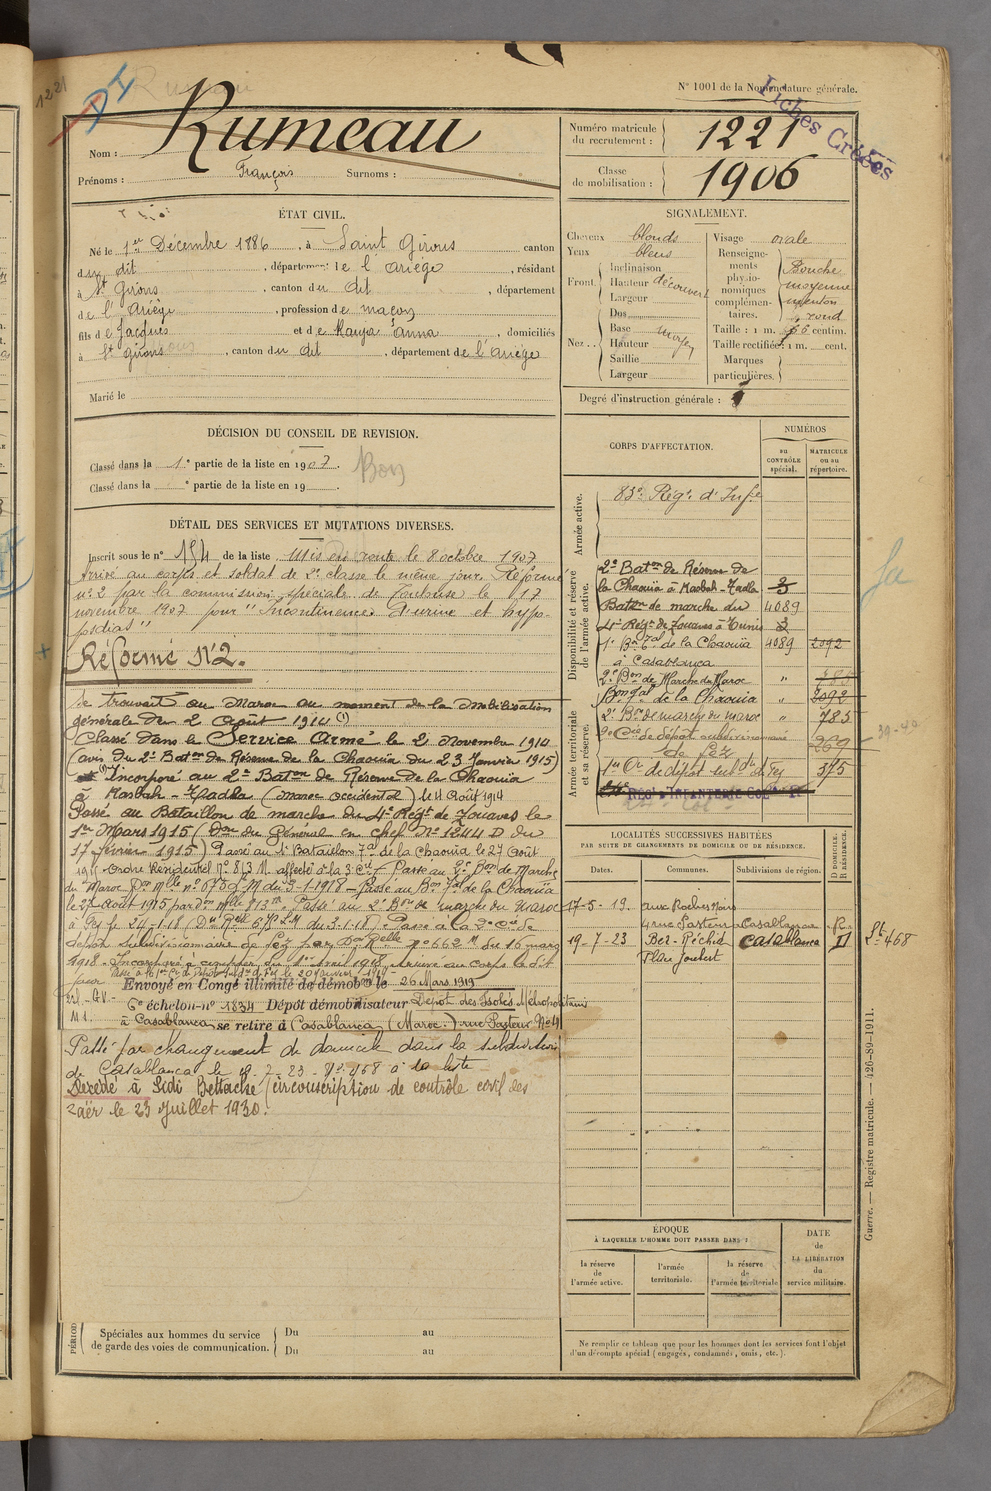 1221
Rumeau
N° 1001 de la Nomenclature générale.
Fiches Créées
Nom : Rumeau
Prénoms : François Surnoms :
Numéro matricule du recrutement : 1221
Classe de mobilisation : 1906
ÉTAT CIVIL.
Né le 1er Décembre 1886, à Saint Girons canton
du dit, département de l'Ariège, résidant
à St Girons, canton du dit, département
de l'Ariège, profession de maçon
fils de Jacques et de Anna, domiciliés
à St Girons, canton du dit, département de l'Ariège
Marié le
SIGNALEMENT.
Cheveux blonds
Yeux bleus
Front
Inclinaison
Hauteur découvert
Largeur
Nez
Dos
Base moyen
Hauteur
Saillie
Largeur
Visage ovale
Renseignements physionomiques complémentaires.
Bouche
moyenne
menton
rond
Taille : 1 m. 66 centim.
Taille rectifiée : 1 m. cent.
Marques particulières.
Degré d'instruction générale :
DÉCISION DU CONSEIL DE REVISION.
Classé dans la 1e partie de la liste en 1907.
Bon
Classé dans la e partie de la liste en 19
DÉTAIL DES SERVICES ET MUTATIONS DIVERSES.
Inscrit sous le n° 154 de la liste. Mis en route le 8 octobre 1907
Arrivé au corps et soldat de 2e classe le même jour. Réformé
n° 2 par la commission spéciale de Toulouse le 17
novembre 1907 pour "Incontinence d'urine et hypo-
spadias"
Réformé N°2.
Se trouvait au Maroc au moment de la mobilisation
générale du 2 Août 1914 (1)
Classé dans le Service Armé le 2 Novembre 1914
(avis du 2e Baton de Réserve de la Chaouïa du 23 Janvier 1915)
(1) Incorporé au 2e Baton de Réserve de la Chaouïa
à Kasbah-Tadla (Maroc Occidental) le 4 Août 1914
Passé au Bataillon de marche du 4e Régt de Zouaves le
1er Mars 1915 (Don du Général en chef N° 1244 D du
17 février 1915) Passé au 1er Bataillon de la Chaouïa le 27 Août
Ordre Résidentiel N° 813 M. affecté à la 3e Cie Passé au 2e Bon de Marche
du Maroc Don Mlle n° 675 M du 3-1-1918 - Passé au Bon de la Chaouïa
le 27 Août 1915 par don Mlle 813 Passé au 2e Bon de marche du Maroc
à Fez le 24-1-18 du 3-1-18) Passé à la 2e Cie de
dépôt subdivisionnaire de Fez par n° 662 M du 16 mars
1918 - Incorporé à compter du 1er Avril 1918, arrivé au corps le dit
jour
Passé à la 1re Cie de Dépôt le 20 Janvier 1919
Envoyé en Congé illimité de démobon le 26 Mars 1919
6e échelon-n° 1834 Dépôt démobilisateur Dépôt des Isolés Métropolitains
à Casablanca se retire à Casablanca (Maroc) rue Pasteur N° 4
Passé par changement de domicile dans la subdivision
de Casablanca le 19-7-23 - N° 468 à la liste
Décédé à Sidi Bettache (circonscription de contrôle civil des
Zaër le 23 Juillet 1930.
CORPS D'AFFECTATION.
NUMÉROS
au CONTRÔLE spécial.
MATRICULE ou au répertoire.
Armée active.
83e Régt d'Infie
Disponibilité et réserve de l'armée active.
2e Baton de Réserve de
la Chaouïa à Kasbah-Tadla 3
Baton de marche du 4089
4e Régt de Zouaves à Tunis 3
1er Bon de la Chaouïa 4089 2092
à Casablanca
2e Bon de Marche du Maroc " 785
Armée territoriale et sa réserve.
Bon de la Chaouïa 2092
2e Bon de marche du Maroc " 785
2e Cie de dépôt subdivisionnaire 269
de Fez
1re Cie de dépôt subdre de Fez 375
RÉGt d'INFANTERIE COLle
LOCALITÉS SUCCESSIVES HABITÉES
PAR SUITE DE CHANGEMENTS DE DOMICILE OU DE RÉSIDENCE.
Dates. Communes. Subdivisions de région. D DOMICILE. R RÉSIDENCE.
17-5-19. aux Roches Noires
4 rue Pasteur Casablanca R.
19-7-23 Ber-Réchid Casablanca D
Place Joubert
468
ÉPOQUE
À LAQUELLE L'HOMME DOIT PASSER DANS :
la réserve de l'armée active.
l'armée territoriale.
la réserve de l'armée territoriale
DATE de LA LIBÉRATION du service militaire.
Ne remplir ce tableau que pour les hommes dont les services font l'objet
d'un décompte spécial (engagés, condamnés, omis, etc.).
PÉRIOD
Spéciales aux hommes du service
de garde des voies de communication.
Du au
Du au
Guerre. — Registre matricule. — 426-89-1911.